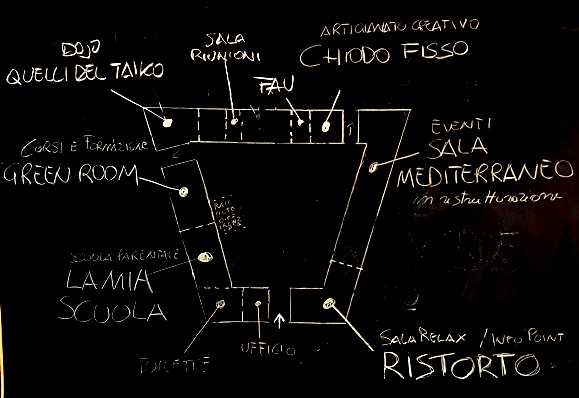 DOJO
QUELLI DEL TAIKO
SALA
RIUNIONI
FAU
ARTIGIANATO CREATIVO
CHIODO FISSO
CORSI E FORMAZIONE
GREEN ROOM
EVENTI
SALA
MEDITERRANEO
in ristrutturazione
SCUOLA PARENTALE
LA MIA
SCUOLA
TOILETTE
UFFICIO
SALA RELAX / INFO POINT
RISTORTO